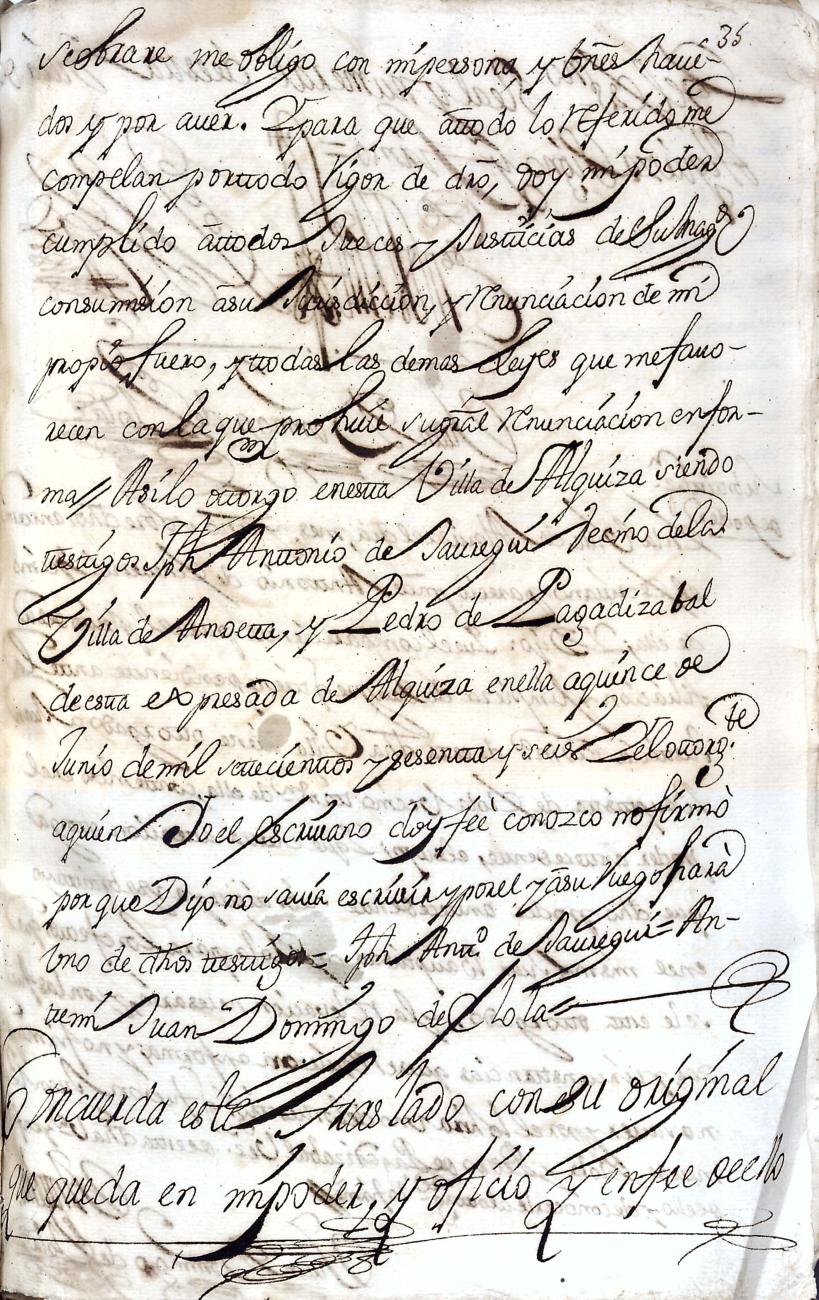 35
seobrare me obligo con mi persona, y bñes havi-
dos y por auer. Y para que âttodo lo referido me
compelan por ttodo Vigor de dro, doy mi poder
cumplido âttodos Jueces y Justticias de Su Magd
consumision âsu Jurisdiccion, y rrenunciacion de mi
propio fuero, y ttodas las demas Leyes que me fauo-
recen con la que prohiue su gral rrenunciacion en for-
ma // Asi lo ottorgo en estta Villa de Alquiza siendo
ttesttigos Jph Anttonio de Jauregui Vecino de la
Villa de Andetta, y Pedro de Pagadizabal
de estta expresada de Alquiza en ella a quince de
Junio de mil settecienttos y sesentta y seis Y el ottorgte
a quien Yo el Escriuano doy feè conozco no firmò
por que Dijo no sauia escriuir y por el y âsu ruego harà
Uno de dhos ttesttigos = Jph Antto de Jauregui = An-
ttemi Juan Domingo de Olola =
Concuerda este Traslado con su original
que queda en mi poder, y oficio y en fee de ello